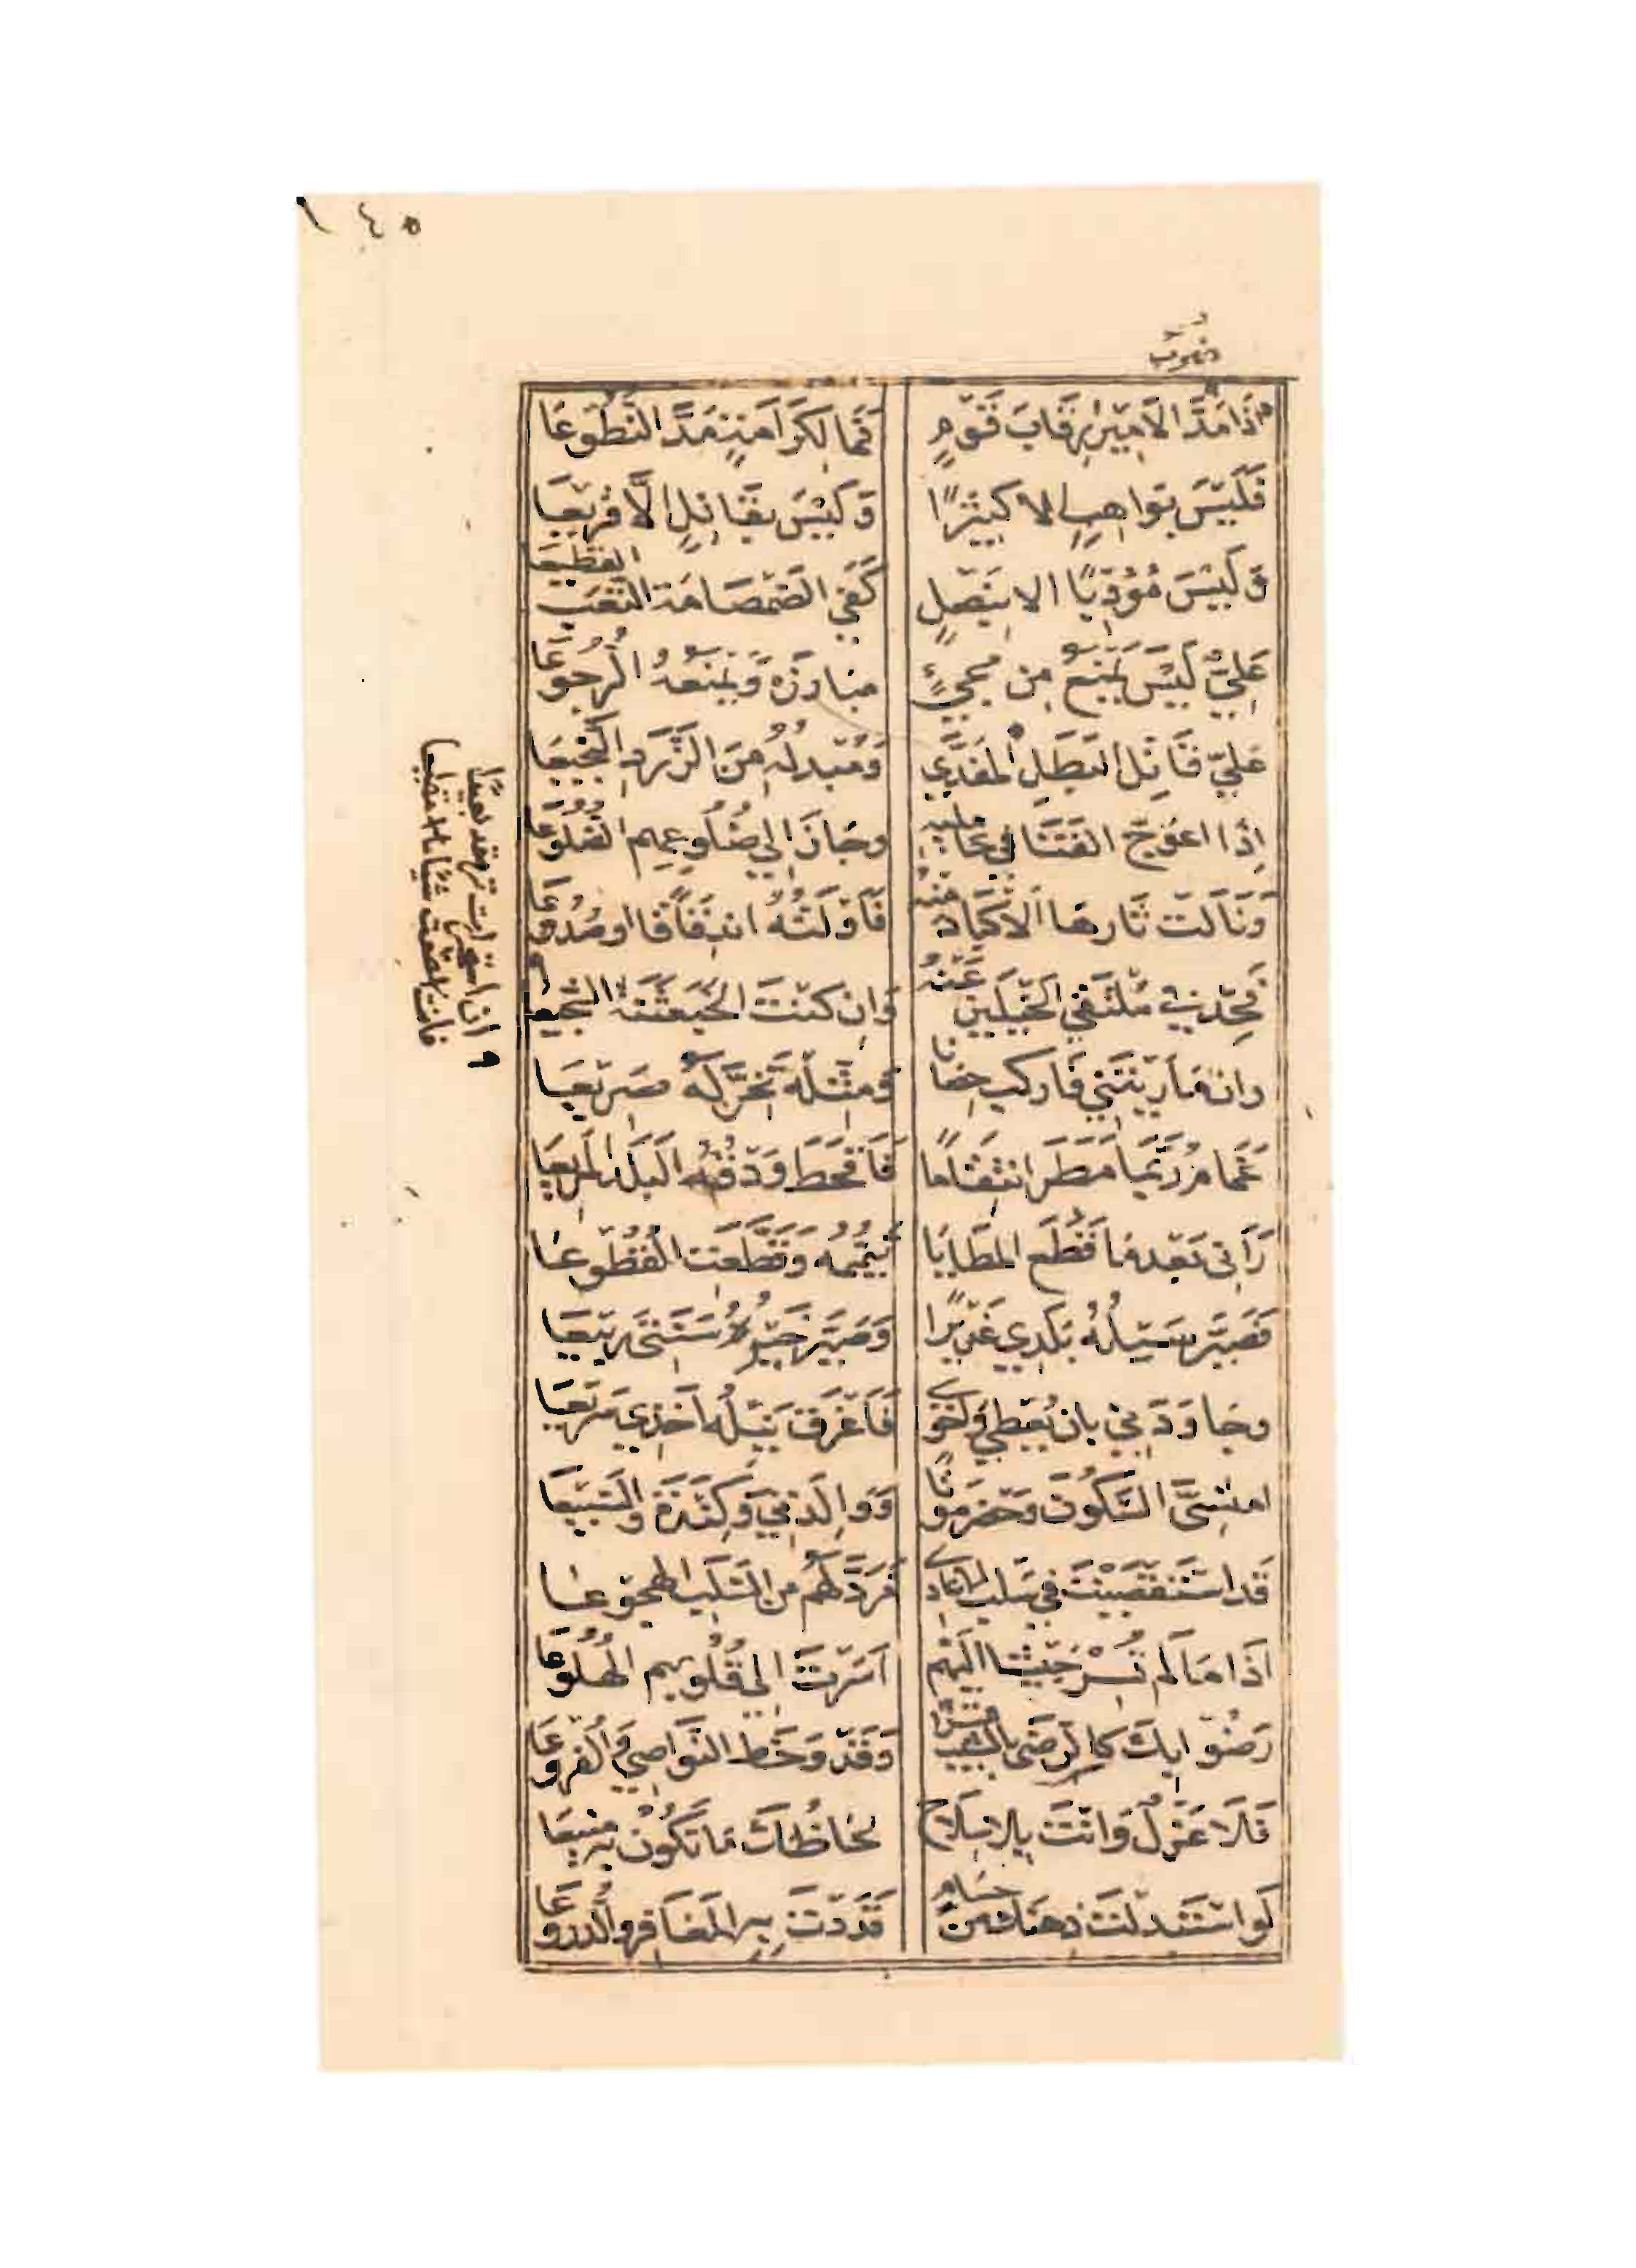 ١٤٥
ضُرُوب
اِذَا مَدَّ الاَمِيْرُ رِقَابَ قَوْمٍ فَمَا لِكَرَامَةٍ مَدَّ النُّطُوعَا
فَلَيْسَ بِوَاهِبٍ الا كَثِيْرًا وَلَيْسَ بِقَاتِلٍ اِلَّا قَرِيْعَا
وَلَيْسَ مُؤَدِّبًا الا بِنَصْلٍ كَفَى الصَّمْصَامَةُ التَّعَبَ القَطِيْعَا
عَلِيٌّ لَيْسَ يَمْنَعُ مِن مَجِيٍّ مبَارِزَهُ وَيَمْنَعُهُ الرُّجُوْعَا
عَلِيٌّ قَاتِلُ البَطَلِ المُفَدَّى وَمُبْدِلُهُ مِنَ الزَّرَدِ النَّجِيعَا
اِذَا اعْوَجَّ القَنَا فِي حَامِلِيهِ وجَازَ اِلى ضُلُوعِهِمِ الضُلُوْعَا
وَنَالَتْ ثَارَهَا الاَكْبَادُ مِنْهُ فَاَوْلَتْهُ انْدِقَاقًا او صُدُوْعَا
فَحِدْ فِي مُلْتَقَى الخَيْلَيْنِ عَنْهُ وَاِن كُنْتَ الخُبَعْثِنَةَ الشَّجِيْعَا
وان مَارَيْتَنِي فَاركَبْ حِصَانًا وَمَثِّلْهُ تَخِرَّ لَهُ صَرِيْعَا
غَمَامٌ رُبَّمَا مَطَرَ انْتِقَامًا فَاَقْحَطَ وَدْقُهُ البَلَدَ المَرِيْعَا
رَآنِى بَعْدَ مَا قَطَعَ المَطَايَا تَيَمُّمُهُ وَقَطَّعَتِ القُطُوعَا
فَصَيَّرَ سَيْلُهُ بَلَدِي غَدِيْرًا وَصَيَّرَ خَيْرُهُ سَنَتِى رَبِيْعَا
وجَاوَدَنِي بِان يُعْطِي وَاَحْوِي فَاَغْرَقَ نَيْلُهُ اَخْذِي سَرِيْعَا
امُنْسِيَّ السَّكُوْنَ وَحَضْرَمَوْتًا وَوَالِدَتِي وَكِنْدَةَ وَالسَّبِيْعَا
قَد اسْتَقْصَيْتَ فِي سَلَبِ الاَعَادِى فَرُدَّ لَهُمْ مِن السَّلَبِ الهُجُوْعَا
اِذَا مَا لَم تُسِرْ جَيْشًا اِلَيْهِمْ اَسَرْتَ اِلَى قُلُوبِهِم الهُلُوْعَا
رَضُوْا بِكَ كالرِّضَى بالشَّيْبِ قَسْرًا وَقَدْ وَخَطَ النَّوَاصِي وَالفُرُوْعَا
فَلَا عَزَلٌ وَاَنْتَ بِلا سِلَاحٍ لحَاظُكَ مَا تَكُوْنُ بِهِ مَنِيعَا
لَوِ اسْتَبْدَلْتَ ذِهْنَكَ مِنْ حُسَامٍ قَدَدْتَ بِهِ المَغَافِرَ وَالدُّرُوْعَا